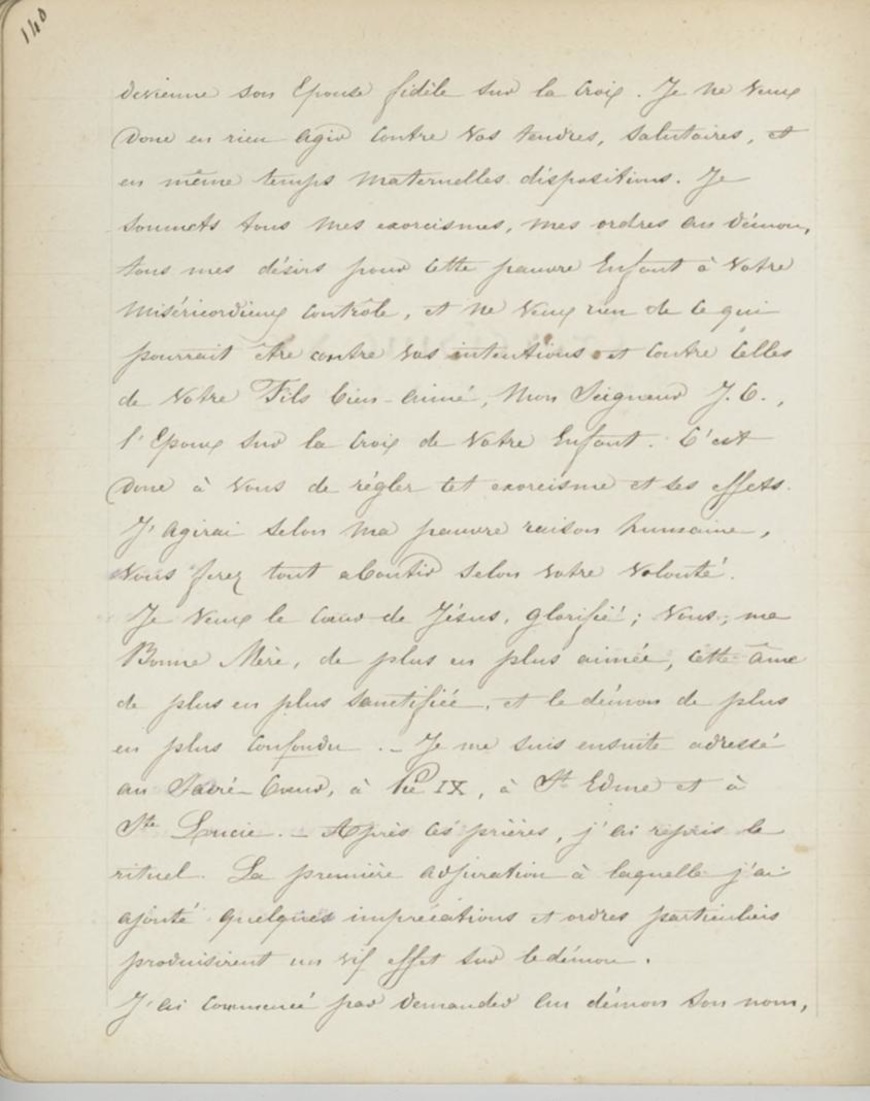 140
devienne son Epouse fidèle sur la Croix. Je ne veux
donc en rien agir contre vos tendres, salutaires, et
en même temps maternelles dispositions. Je
soumets tous mes exorcismes, mes ordres au démon,
tous mes désirs pour cette pauvre Enfant à votre
miséricordieux contrôle, et ne veux rien de ce qui
pourrait être contre vos intentions et contre celles
de Votre Fils bien-aimé, Mon Seigneur J. C.,
l'Epoux sur la Croix de votre Enfant. C'est
donc à vous de régler cet exorcisme et ses effets.
J'agirai selon ma pauvre raison humaine,
Vous ferez tout aboutir selon votre volonté.
Je veux le Cœur de Jésus, glorifié; Vous, ma
Bonne Mère, de plus en plus aimée, cette âme
de plus en plus sanctifiée, et le démon de plus
en plus confondu. _ Je me suis ensuite adressé
au Sacré-Cœur, à Pie IX, à St Edme et à
Ste Lucie. _ Après ces prières, j'ai repris le
rituel. La première adjuration à laquelle j'ai
ajouté quelques imprécations et ordres particuliers
produisirent un vif effet sur le démon.
J'ai commencé par demander au démon son nom,